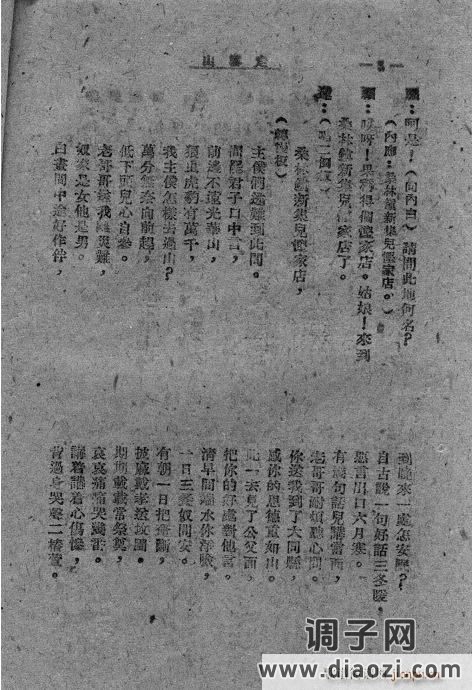 走雪山
：啊是！（向內白）請問此地何名？
（內應：桑林鎮新集兒
家店。）
：呀呀！
家店。姑娘！來到
桑林鎮新集兒
家店了。
（唱二
）
桑林鎮新集兒
家店，
主僕們逃難到此間。
君子口中言，
前邊不遠光華山，
狼虫虎豹有萬千，
我主僕怎樣去過山？
萬分無奈向前起，
低下頭兒心自參。
老哥哥
我
災難，
奴家是女他是男。
白晝間中途好作伴，
到晚來一處怎安眠？
自古說一句好話三冬暖，
惡言出口六月寒。
有幾句話兒講當面，
老哥哥耐煩聽心間。
你送我到了大同縣，
感你的恩德重如山。
此一去見了公父面，
把你的好處對他言。
清早間
水你淨臉，
一日三餐奴問安。
有朝一日把
斷，
披麻戴孝送坟園。
期期載載常祭奠，
哀哀痛痛哭幾番。
講着講着心傷慘，
背過身哭聲二椿萱。
调子网
www.diaozi.com